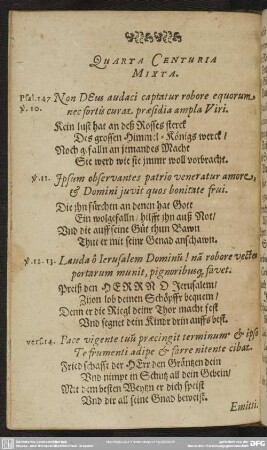 QUARTA CENTURIA
MIXTA.
Psal. 147 Non DEus audaci captatur robore equorum
v. 10. nec fortis curat præsidia ampla Viri.
Kein lust hat an deß Rosses sterck
Des grossen Himmel-Königs werck/
Noch gfalln an jemandes Macht
Sie werd wie sie jmmr woll vorbracht.
v. 11. Ipsum observantes patrio veneratur amore,
& Domini juvit quos bonitate frui.
Die jhn fürchten an denen hat Gott
Ein wolgefalln/ hilfft jhn auß Not/
Und die auff seine Güt thun Bawn
Thut er mit seine Genad anschawn.
v. 12. 13. Lauda ô Ierusalem Dominũ! nã robore vectes
portarum munit, pignoribusq; favet.
Preiß den HERRN O Jerusalem/
Zion lob deinen Schöpffr bequem/
Denn er die Riegl deinr Thor macht fest
Und segnet dein Kindr drin auffs best.
vers. 14. Pace vigente tuũ præcingit terminum & ipso
Te frumenti adipe & farre nitente cibat.
Fried schafft der HErr den Gräntzen dein
Und nimpt in Schutz all dein Gebein/
Mit dem besten Weytzn er dich speist
Und dir all seine Gnad beweist.
Emitti.